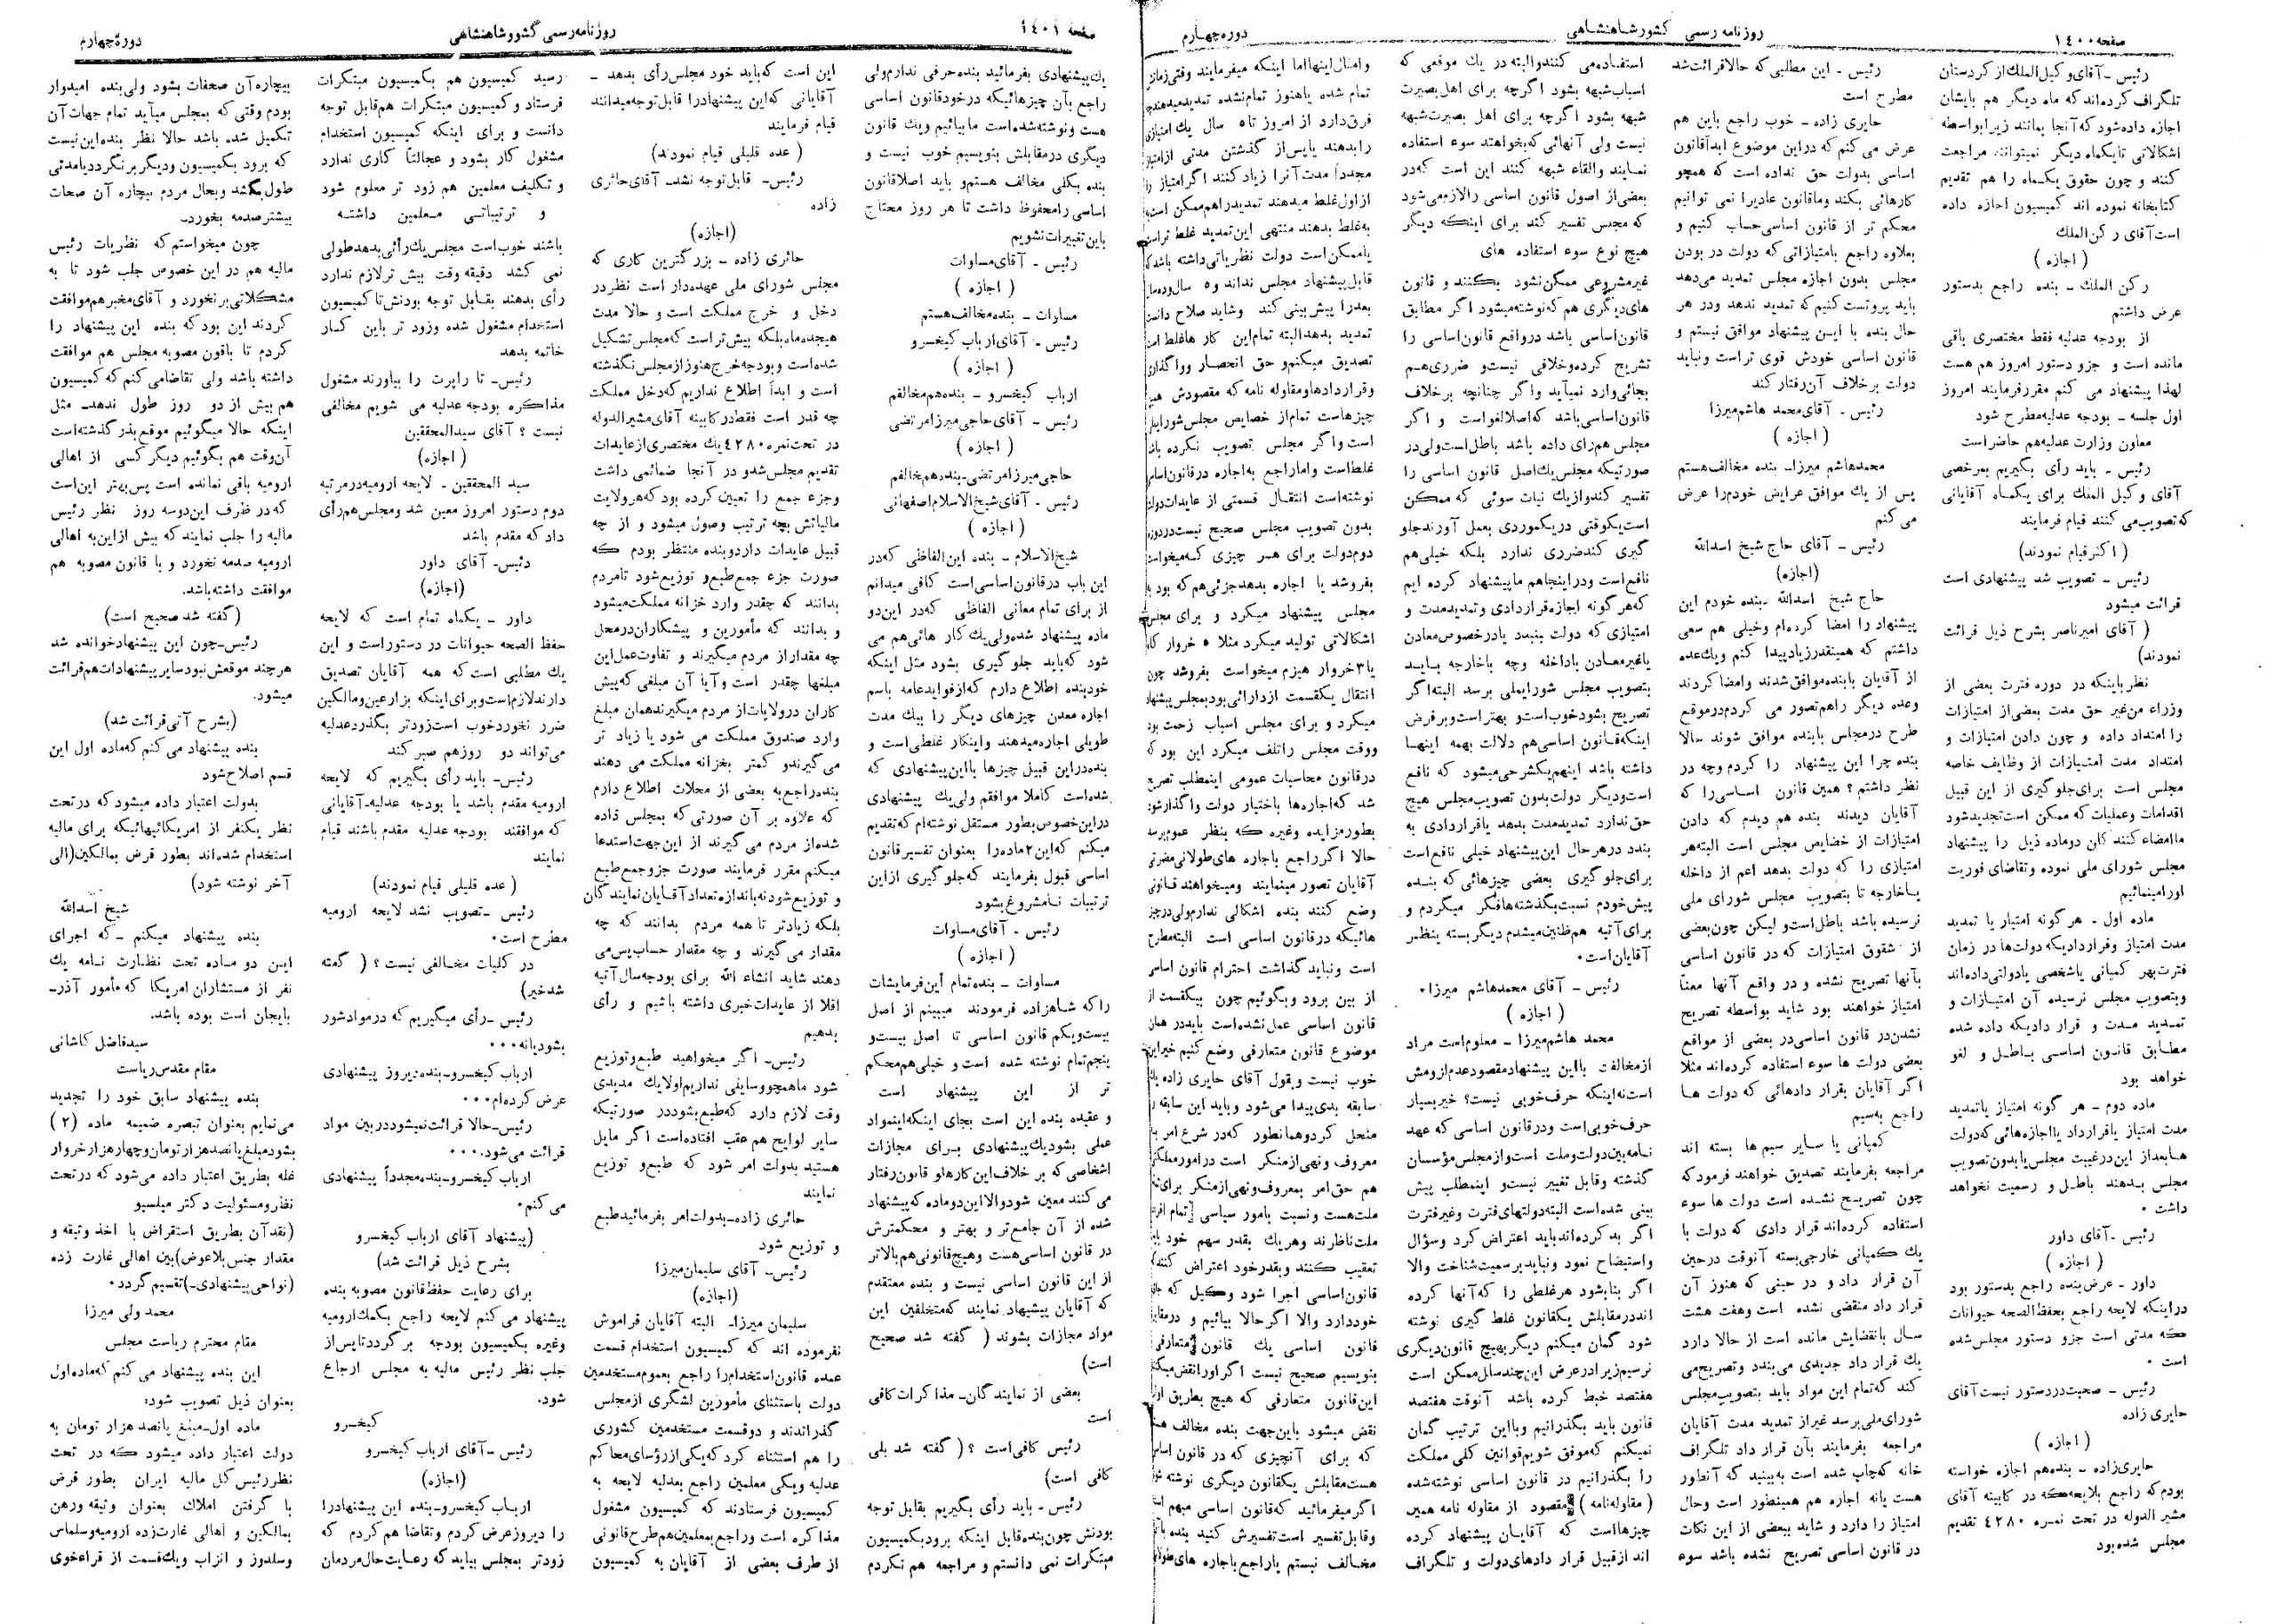 صفحه ۱۴۰۰
روزنامه رسمی کشور شاهنشاهی
دوره چهارم
رئیس ـ آقای وکیل الملك از کردستان
تلگراف کرده‌اند که ماه دیگر هم بایشان
اجازه داده شود که آنجا بمانند زیرا بواسطه
اشکالاتی تا یکماه دیگر نمیتوانند مراجعت
کنند و چون حقوق یکماه را هم تقدیم
کتابخانه نموده اند کمیسیون اجازه داده
است آقای رکن الملك
( اجازه )
رکن الملك ـ بنده راجع بدستور
عرض داشتم
از بودجه عدلیه فقط مختصری باقی
مانده است و جزو دستور امروز هم هست
لهذا پیشنهاد می کنم مقرر فرمایند امروز
اول جلسه ـ بودجه عدلیه مطرح شود
معاون وزارت عدلیه هم حاضر است
رئیس ـ باید رأی بگیریم بمرخصی
آقای وکیل الملك برای یکماه آقایانی
که تصویب می کنند قیام فرمایند
( اکثر قیام نمودند)
رئیس ـ تصویب شد پیشنهادی است
قرائت میشود
( آقای امیر ناصر بشرح ذیل قرائت
نمودند)
نظر باینکه در دوره فترت بعضی از
وزراء من غیر حق مدت بعضی از امتیازات
را امتداد داده و چون دادن امتیازات و
امتداد مدت امتیازات از وظایف خاصه
مجلس است برای جلوگیری از این قبیل
اقدامات و عملیات که ممکن است تجدید شود
ما امضاء کنندگان دو ماده ذیل را پیشنهاد
مجلس شورای ملی نموده و تقاضای فوریت
اورا مینمائیم
ماده اول ـ هر گونه امتیاز یا تمدید
مدت امتیاز و قراردادیکه دولت‌ها در زمان
فترت بهر کمپانی یا شخصی یا دولتی داده‌اند
و بتصویب مجلس نرسیده آن امتیازات و
تمدید مدت و قرار دادیکه داده شده
مطابق قانون اساسی باطل و لغو
خواهد بود
ماده دوم ـ هر گونه امتیاز یا تمدید
مدت امتیاز یا قرارداد یا اجازه هائی که دولت
ها بعد از این در غیبت مجلس یا بدون تصویب
مجلس بدهند باطل و رسمیت نخواهد
داشت ۰
رئیس ـ آقای داور
( اجازه )
داور ـ عرض بنده راجع بدستور بود
در اینکه لایحه راجع بحفظ الصحه حیوانات
که مدتی است جزو دستور مجلس شده
است ۰
رئیس ـ صحبت در دستور نیست آقای
حایری زاده
( اجازه )
حایری زاده ـ بنده هم اجازه خواسته
بودم که راجع بلایحه که در کابینه آقای
مشیر الدوله در تحت نمره ۴۲۸۰ تقدیم
مجلس شده بود
رئیس ـ این مطلبی که حالا قرائت شد
مطرح است
حایری زاده ـ خوب راجع باین هم
عرض می کنم که در این موضوع ابدا قانون
اساسی بدولت حق نداده است که همچو
کارهائی بکند و ما قانون عادی را نمی توانیم
محکم تر از قانون اساسی حساب کنیم و
بعلاوه راجع بامتیازاتی که دولت در بودن
مجلس بدون اجازه مجلس تمدید می‌دهد
باید پروتست کنیم که تمدید ندهد و در هر
حال بنده با این پیشنهاد موافق نیستم و
قانون اساسی خودش قوی تر است و نباید
دولت برخلاف آن رفتار کند
رئیس ـ آقای محمد هاشم میرزا
( اجازه )
محمد هاشم میرزا ـ بنده مخالف هستم
پس از یك موافق عرایض خودم را عرض
می کنم
رئیس ـ آقای حاج شیخ اسدالله
(اجازه)
حاج شیخ اسدالله ـ بنده خودم این
پیشنهاد را امضا کرده‌ام و خیلی هم سعی
داشتم که همینقدر زیاد پیدا کنم و یك عده
از آقایان با بنده موافق شدند و امضا کردند
و عده دیگر را هم تصور می کردم در موقع
طرح در مجلس با بنده موافق شوند حالا
بنده چرا این پیشنهاد را کردم و چه در
نظر داشتم ؟ همین قانون اساسی را که
آقایان دیدند بنده هم دیدم که دادن
امتیازات از خصایص مجلس است البته هر
امتیازی را که دولت بدهد اعم از داخله
یا خارجه تا بتصویب مجلس شورای ملی
نرسیده باشد باطل است و لیکن چون بعضی
از شقوق امتیازات که در قانون اساسی
بآنها تصریح نشده و در واقع آنها معناً
امتیاز خواهند بود شاید بواسطه تصریح
نشدن در قانون اساسی در بعضی از مواقع
بعضی دولت ها سوء استفاده کرده‌اند مثلا
اگر آقایان بقرار دادهائی که دولت ها
راجع به سیم
کمپانی یا سایر سیم ها بسته اند
مراجعه بفرمایند تصدیق خواهند فرمود که
چون تصریح نشده است دولت ها سوء
استفاده کرده‌اند قرار دادی که دولت با
یك کمپانی خارجی بسته آنوقت در حین
آن قرار داد و در حینی که هنوز آن
قرار داد منقضی نشده است و هفت هشت
سال بانقضایش مانده است از حالا دارد
یك قرار داد جدیدی می بندد و تصریح می
کند که تمام این مواد باید بتصویب مجلس
شورای ملی برسد غیر از تمدید مدت آقایان
مراجعه بفرمایند بآن قرار داد تلگراف
خانه که چاپ شده است به بینید که آنطور
هست یا نه اجازه هم همینطور است و حال
امتیاز را دارد و شاید ببعضی از این نکات
در قانون اساسی تصریح نشده باشد سوء
استفاده می کنند و البته در یك موقعی که
اسباب شبهه بشود اگرچه برای اهل بصیرت
شبهه بشود اگرچه برای اهل بصیرت شبهه
نیست ولی آنهائی که بخواهند سوء استفاده
نمایند و القاء شبهه کنند این است که در
بعضی از اصول قانون اساسی را لازم می‌شود
که مجلس تفسیر کند برای اینکه دیگر
هیچ نوع سوء استفاده های
غیر مشروعی ممکن نشود بکنند و قانون
های دیگری هم که نوشته میشود اگر مطابق
قانون اساسی باشد در واقع قانون اساسی را
تشریح کرده و خلافی نیست و ضرری هم
بجائی وارد نمیآید و اگر چنانچه برخلاف
قانون اساسی باشد که اصلا لغو است و اگر
مجلس هم رای داده باشد باطل است ولی در
صورتیکه مجلس یك اصل قانون اساسی را
تفسیر کند و از یك نیات سوئی که ممکن
است یکوقتی در یکموردی بعمل آورند جلو
گیری کند ضرری ندارد بلکه خیلی هم
نافع است و در اینجا هم ما پیشنهاد کرده ایم
که هر گونه اجازه قراردادی و تمدید مدت و
امتیازی که دولت بنبدد یا در خصوص معادن
یا غیر معادن با داخله و چه با خارجه باید
بتصویب مجلس شورای ملی برسد البته اگر
تصریح بشود خوب است و بهتر است و بر فرض
اینکه قانون اساسی هم دلالت بهمه اینها
داشته باشد اینهم یکشرحی میشود که نافع
است و دیگر دولت بدون تصویب مجلس هیچ
حق ندارد تمدید مدت بدهد یا قراردادی به
بندد در هر حال این پیشنهاد خیلی نافع است
برای جلوگیری بعضی چیزهائی که بنده
پیش خودم نسبت بگذشته ها فکر میکردم و
برای آتیه هم ظنین میشدم دیگر بسته بنظر
آقایان است ۰
رئیس ـ آقای محمد هاشم میرزا ۰
( اجازه )
محمد هاشم میرزا ـ معلوم است مراد
از مخالفت با این پیشنهاد مقصود عدم لزومش
است نه اینکه حرف خوبی نیست؟ خیر بسیار
حرف خوبی است و در قانون اساسی که عهد
نامه بین دولت و ملت است و از مجلس مؤسسان
گذشته و قابل تغییر نیست و اینمطلب پیش
بینی شده است البته دولتهای فترت و غیر فترت
اگر بد کرده‌اند باید اعتراض کرد و سؤال
و استیضاح نمود و نباید برسمیت شناخت والا
اگر بنا بشود هر غلطی را که آنها کرده
اند در مقابلش یکقانون غلط گیری نوشته
شود گمان میکنم دیگر بهیچ قانون دیگری
نرسیم زیرا در عرض این چند سال ممکن است
هفتصد خبط کرده باشد آنوقت هفتصد
قانون باید بگذرانیم و با این ترتیب گمان
نمیکنم که موفق شویم قوانین کلی مملکت
را بگذرانیم در قانون اساسی نوشته شده
( مقاوله نامه ) مقصود از مقاوله نامه همین
چیزها است که آقایان پیشنهاد کرده
اند از قبیل قرار دادهای دولت و تلگراف
و امثال اینها اما اینکه میفرمایند وقتی زمان
تمام شده یا هنوز تمام نشده تمدید میدهند
فرق دارد از امروز تا ۵ سال یك امتیازی
را بدهند یا پس از گذشتن مدتی از امتیاز
مجدداً مدت آنرا زیاد کنند اگر امتیاز را
از اول غلط میدهند تمدید را هم ممکن است
به غلط بدهند منتهی این تمدید غلط تر است
یا ممکن است دولت نظریاتی داشته باشد که
قابل پیشنهاد مجلس نداند و ۵ سال و ده سال
بعد را پیش بینی کند و شاید صلاح دانست
تمدید بدهد البته تمام این کار ها غلط است
تصدیق میکنم و حق انحصار و واگذاری
و قراردادها و مقاوله نامه که مقصودش همین
چیزهاست تمام از خصایص مجلس شورای ملی
است و اگر مجلس تصویب نکرده باشد
غلط است و اما راجع به اجازه در قانون اساسی
نوشته است انتقال قسمتی از عایدات دولت
بدون تصویب مجلس صحیح نیست در دوره
دوم دولت برای هر چیزی که میخواست
بفروشد یا اجاره بدهد جزئی هم که بود به
مجلس پیشنهاد میکرد و برای مجلس
اشکالاتی تولید میکرد مثلا ۵ خروار کاه
یا ۳ خروار هیزم میخواست بفروشد چون
انتقال یکقسمت از دارائی بود بمجلس پیشنهاد
میکرد و برای مجلس اسباب زحمت بود
و وقت مجلس را تلف میکرد این بود که
در قانون محاسبات عمومی اینمطلب تصریح
شد که اجاره‌ها باختیار دولت واگذار شود
بطور مزایده وغیره که بنظر عموم برسد
حالا اگر راجع باجاره های طولانی مضرتی
آقایان تصور مینمایند و میخواهند قانونی
وضع کنند بنده اشکالی ندارم ولی در چیز
هائیکه در قانون اساسی است البته مطرح
است و نباید گذاشت احترام قانون اساسی
از بین برود و بگوئیم چون بیکقسمت از
قانون اساسی عمل نشده است باید در همان
موضوع قانون متعارفی وضع کنیم خیر این
خوب نیست و بقول آقای حایری زاده یك
سابقه بدی پیدا می‌شود و باید این سابقه را
منحل کرد و همانطور که در شرع امر به
معروف و نهی از منکر است در امور مملکتی
هم حق امر بمعروف و نهی از منکر برای
ملت هست و نسبت بامور سیاسی تمام افراد
ملت ناظرند و هر یك بقدر سهم خود باید
تعقیب کنند و بقدر خود اعتراض کنند
قانون اساسی اجرا شود و وکیل که جای
خود دارد والا اگر حالا بیائیم و در مقابل
قانون اساسی یك قانون متعارفی
بنویسیم صحیح نیست اگر اورا نقض میکنند
این قانون متعارفی که هیچ بطریق اولی
نقض میشود باین جهت بنده مخالف هستم
که برای آنچیزی که در قانون اساسی
هست مقابلش یکقانون دیگری نوشته شود
اگر میفرمائید که قانون اساسی مبهم است
و قابل تفسیر است تفسیرش کنید بنده با آن
مخالف نیستم یا راجع باجاره های طولانی
صفحه ۱۴۰۱
روزنامه رسمی کشور شاهنشاهی
دوره چهارم
یك پیشنهادی بفرمائید بنده حرفی ندارم ولی
راجع بآن چیزهائیکه در خود قانون اساسی
هست و نوشته شده است ما بیائیم و یك قانون
دیگری در مقابلش بنویسیم خوب نیست و
بنده بکلی مخالف هستم و باید اصلا قانون
اساسی را محفوظ داشت تا هر روز محتاج
باین تغییرات نشویم
رئیس ـ آقای مساوات
( اجازه )
مساوات ـ بنده مخالف هستم
رئیس ـ آقای ارباب کیخسرو
( اجازه )
ارباب کیخسرو ـ بنده هم مخالفم
رئیس ـ آقای حاجی میرزا مرتضی
( اجازه )
حاجی میرزا مرتضی ـ بنده هم مخالفم
رئیس ـ آقای شیخ الاسلام اصفهانی
( اجازه )
شیخ الاسلام ـ بنده این الفاظی که در
این باب در قانون اساسی است کافی میدانم
از برای تمام معانی الفاظی که در این دو
ماده پیشنهاد شده ولی یك کار هائی هم می
شود که باید جلوگیری بشود مثل اینکه
خود بنده اطلاع دارم که از فواید عامه باسم
اجاره معدن چیزهای دیگر را بیك مدت
طویلی اجاره میدهند و اینکار غلطی است و
بنده در این قبیل چیزها با این پیشنهادی که
شده است کاملا موافقم ولی یك پیشنهادی
در این خصوص بطور مستقل نوشته‌ام که تقدیم
میکنم که این ۲ ماده را بعنوان تفسیر قانون
اساسی قبول بفرمایند که جلوگیری از این
ترتیبات نامشروع بشود
رئیس ـ آقای مساوات
( اجازه )
مساوات ـ بنده تمام این فرمایشات
را که شاهزاده فرمودند مبینم از اصل
بیست و یکم قانون اساسی تا اصل بیست و
پنجم تمام نوشته شده است و خیلی هم محکم
تر از این پیشنهاد است
و عقیده بنده این است بجای اینکه اینمواد
عملی بشود یك پیشنهادی برای مجازات
اشخاصی که بر خلاف این کارها و قانون رفتار
می کنند معین شود والا این دو ماده که پیشنهاد
شده از آن جامع تر و بهتر و محکمترش
در قانون اساسی هست و هیچ قانونی هم بالاتر
از این قانون اساسی نیست و بنده معتقدم
که آقایان پیشنهاد نمایند که متخلفین این
مواد مجازات بشوند ( گفته شد صحیح
است)
بعضی از نمایندگان ـ مذاکرات کافی
است
رئیس کافی است ؟ ( گفته شد بلی
کافی است)
رئیس ـ باید رأی بگیریم بقابل توجه
بودنش چون بنده قابل اینکه برود بکمیسیون
مبتکرات نمی دانستم و مراجعه هم نکردم
این است که باید خود مجلس رأی بدهد ـ
آقایانی که این پیشنهاد را قابل توجه میدانند
قیام فرمایند
( عده قلیلی قیام نمودند)
رئیس ـ قابل توجه نشد ـ آقای حائری
زاده
(اجازه)
حائری زاده ـ بزرگترین کاری که
مجلس شورای ملی عهده‌دار است نظر در
دخل و خرج مملکت است و حالا مدت
هیجده ماه بلکه بیش تر است که مجلس تشکیل
شده است و بودجه خرج هنوز از مجلس نگذشته
است و ابدا اطلاع نداریم که دخل مملکت
چه قدر است فقط در کابینه آقای مشیر الدوله
در تحت نمره ۴۲۸۰ یك مختصری از عایدات
تقدیم مجلس شد و در آنجا ضمائمی داشت
و جزء جمع را تعیین کرده بود که هر ولایت
مالیاتش بچه ترتیب وصول میشود و از چه
قبیل عایدات دارد و بنده منتظر بودم که
صورت جزء جمع طبع و توزیع شود تا مردم
بدانند که چقدر وارد خزانه مملکت میشود
و بدانند که مأمورین و پیشکاران در محل
چه مقدار از مردم میگیرند و تفاوت عمل این
مبلغها چقدر است و آیا آن مبلغی که پیش
کاران در ولایات از مردم میگیرند همان مبلغ
وارد صندوق مملکت می شود یا زیاد تر
می گیرند و کمتر بخزانه مملکت می دهند
بنده راجع به بعضی از محلات اطلاع دارم
که علاوه بر آن صورتی که بمجلس داده
شده از مردم می گیرند از این جهت استدعا
میکنم مقرر فرمایند صورت جزو جمع طبع
و توزیع شود نه باندازه تعداد آقایان نمایندگان
بلکه زیادتر تا همه مردم بدانند که چه
مقدار می گیرند و چه مقدار حساب پس می
دهند شاید انشاء الله برای بودجه سال آتیه
اقلا از عایدات خبری داشته باشیم و رأی
بدهیم
رئیس ـ اگر میخواهید طبع و توزیع
شود ما همچو وسایلی نداریم اولا یك مدیدی
وقت لازم دارد که طبع بشود در صورتیکه
سایر لوایح هم عقب افتاده است اگر مایل
هستید بدولت امر شود که طبع و توزیع
نمایند
حائری زاده ـ بدولت امر بفرمائید طبع
و توزیع شود
رئیس ـ آقای سلیمان میرزا
(اجازه)
سلیمان میرزا ـ البته آقایان فراموش
نفرموده اند که کمیسیون استخدام قسمت
عمده قانون استخدام را راجع بعموم مستخدمین
دولت باستثنای مأمورین لشگری از مجلس
گذراندند و دو قسمت مستخدمین کشوری
را هم استثناء کرد که یکی از رؤسای محاکم
عدلیه و یکی معلمین راجع بعدلیه لایحه به
کمیسیون فرستادند که کمیسیون مشغول
مذاکره است و راجع بمعلمین هم طرح قانونی
از طرف بعضی از آقایان به کمیسیون
رسید کمیسیون هم بکمیسیون مبتکرات
فرستاد و کمیسیون مبتکرات هم قابل توجه
دانست و برای اینکه کمیسیون استخدام
مشغول کار بشود و عجالتاً کاری ندارد
و تکلیف معلمین هم زود تر معلوم شود
و ترتیباتی معلمین داشته
باشند خوب است مجلس یك رأئی بدهد طولی
نمی کشد دقیقه وقت بیش تر لازم ندارد
رأی بدهند بقابل توجه بودنش تا کمیسیون
استخدام مشغول شده و زود تر باین کار
خاتمه بدهد
رئیس ـ تا راپرت را بیاورند مشغول
مذاکره بودجه عدلیه می شویم مخالفی
نیست ؟ آقای سید المحققین
( اجازه)
سید المحققین ـ لایحه ارومیه در مرتبه
دوم دستور امروز معین شد و مجلس هم رأی
داد که مقدم باشد
رئیس ـ آقای داور
(اجازه)
داور ـ یکماه تمام است که لایحه
حفظ الصحه حیوانات در دستور است و این
یك مطلبی است که همه آقایان تصدیق
دارند لازم است و برای اینکه بزارعین و مالکین
ضرر نخورد خوب است زودتر بگذرد عدلیه
می‌تواند دو روز هم صبر کند
رئیس ـ باید رأی بگیریم که لایحه
ارومیه مقدم باشد یا بودجه عدلیه ـ آقایانی
که موافقند بودجه عدلیه مقدم باشند قیام
نمایند
( عده قلیلی قیام نمودند)
رئیس ـ تصویب نشد لایحه ارومیه
مطرح است ۰
در کلیات مخالفی نیست ؟ ( گفته
شد خیر)
رئیس ـ رأی میگیریم که در مواد شور
بشود یا نه ۰۰۰
ارباب کیخسرو ـ بنده دیروز پیشنهادی
عرض کرده‌ام ۰۰۰
رئیس ـ حالا قرائت نمیشود در بین مواد
قرائت می‌شود ۰۰۰
ارباب کیخسرو ـ بنده مجدداً پیشنهادی
می کنم ۰
(پیشنهاد آقای ارباب کیخسرو
بشرح ذیل قرائت شد)
برای رعایت حفظ قانون مصوبه بنده
پیشنهاد می کنم لایحه راجع بکمك ارومیه
وغیره بکمیسیون بودجه برگردد تا پس از
جلب نظر رئیس مالیه به مجلس ارجاع
شود.
کیخسرو
رئیس ـ آقای ارباب کیخسرو
(اجازه)
ارباب کیخسرو ـ بنده این پیشنهاد را
را دیروز عرض کردم و تقاضا هم کردم که
زودتر بمجلس بیاید که رعایت حال مردمان
بیچاره آن صفحات بشود ولی بنده امیدوار
بودم وقتی که بمجلس میآید تمام جهات آن
تکمیل شده باشد حالا نظر بنده این نیست
که برود بکمیسیون و دیگر برنگردد یا مدتی
طول بکشد و بحال مردم بیچاره آن صحات
بیشتر صدمه بخورد ـ
چون میخواستم که نظریات رئیس
مالیه هم در این خصوص جلب شود تا به
مشکلاتی برنخورد و آقای مخبر هم موافقت
کردند این بود که بنده این پیشنهاد را
کردم تا باقون مصوبه مجلس هم موافقت
داشته باشد ولی تقاضا می کنم که کمیسیون
هم بیش از دو روز طول ندهد ـ مثل
اینکه حالا میگوئیم موقع بذر گذشته است
آنوقت هم بگوئیم دیگر کسی از اهالی
ارومیه باقی نمانده است پس بهتر این است
که در ظرف این دوسه روز نظر رئیس
مالیه را جلب نمایند که بیش از این به اهالی
ارومیه صدمه نخورد و با قانون مصوبه هم
موافقت داشته باشد.
(گفته شد صحیح است)
رئیس ـ چون این پیشنهاد خوانده شد
هر چند موقعش نبود سایر پیشنهادات هم قرائت
میشود.
(بشرح آتی قرائت شد)
بنده پیشنهاد می کنم که ماده اول این
قسم اصلاح شود
بدولت اعتبار داده میشود که در تحت
نظر یکنفر از امریکائیهائیکه برای مالیه
استخدام شده‌اند بطور قرض بمالکین (الی
آخر نوشته شود)
شیخ اسدالله
بنده پیشنهاد میکنم ـ که اجرای
این دو ماده تحت نظارت نامه یك
نفر از مستشاران امریکا که مأمور آذر ـ
بایجان است بوده باشد.
سید فاضل کاشانی
مقام مقدس ریاست
بنده پیشنهاد سابق خود را تجدید
می‌نمایم بعنوان تبصره ضمیمه ماده (۲ )
بشود مبلغ پانصد هزار تومان و چهار هزار خروار
غله بطریق اعتبار داده می‌شود که در تحت
نظر و مسئولیت دکتر میلسپو
(نقد آن بطریق استقراض با اخذ وثیقه و
مقدار جنس بلاعوض) بین اهالی غارت زده
(نواحی پیشنهادی ـ) تقسیم گردد ۰
محمد ولی میرزا
مقام محترم ریاست مجلس
این بنده پیشنهاد می کنم که ماده اول
بعنوان ذیل تصویب شود:
ماده اول ـ مبلغ پانصد هزار تومان به
دولت اعتبار داده میشود که در تحت
نظر رئیس کل مالیه ایران بطور قرض
با گرفتن املاك بعنوان وثیقه و رهن
بمالکین و اهالی غارت زده ارومیه و سلماس
و سلدوز و انزاب و یك قسمت از قراء خوی